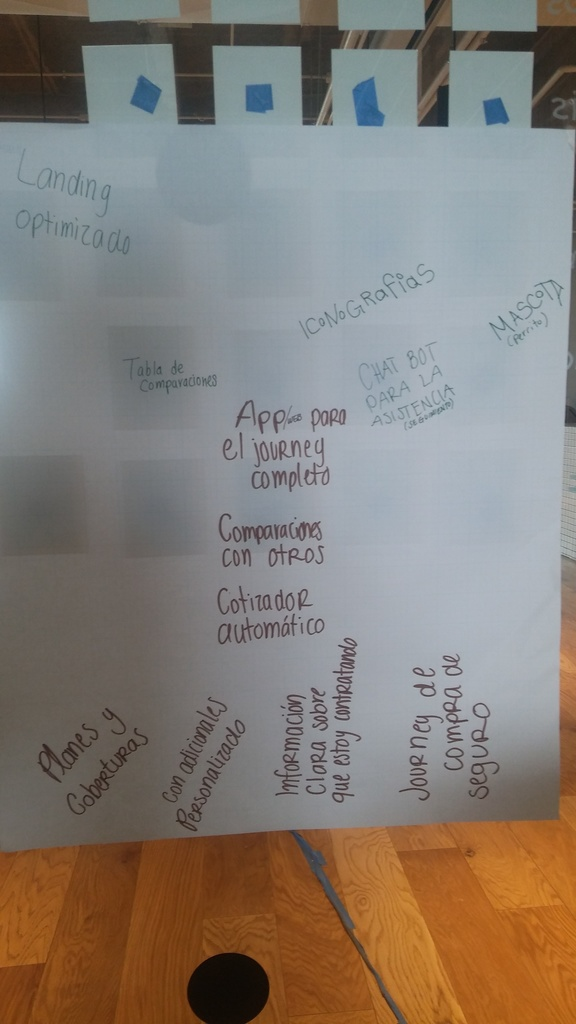 Landing
optimizado
ICONOGRAFÍAS
MASCOTA
(Perrito)
Tabla de
Comparaciones
CHAT BOT
PARA LA
ASISTENCIA
(SEGUIMIENTO)
App/WEB para
el journey
completo
Comparaciones
con otros
Cotizador
automático
Planes y
Coberturas
con adicionales
Personalizado
Información
Clara sobre
que estoy contratando
Journey de
compra de
seguro